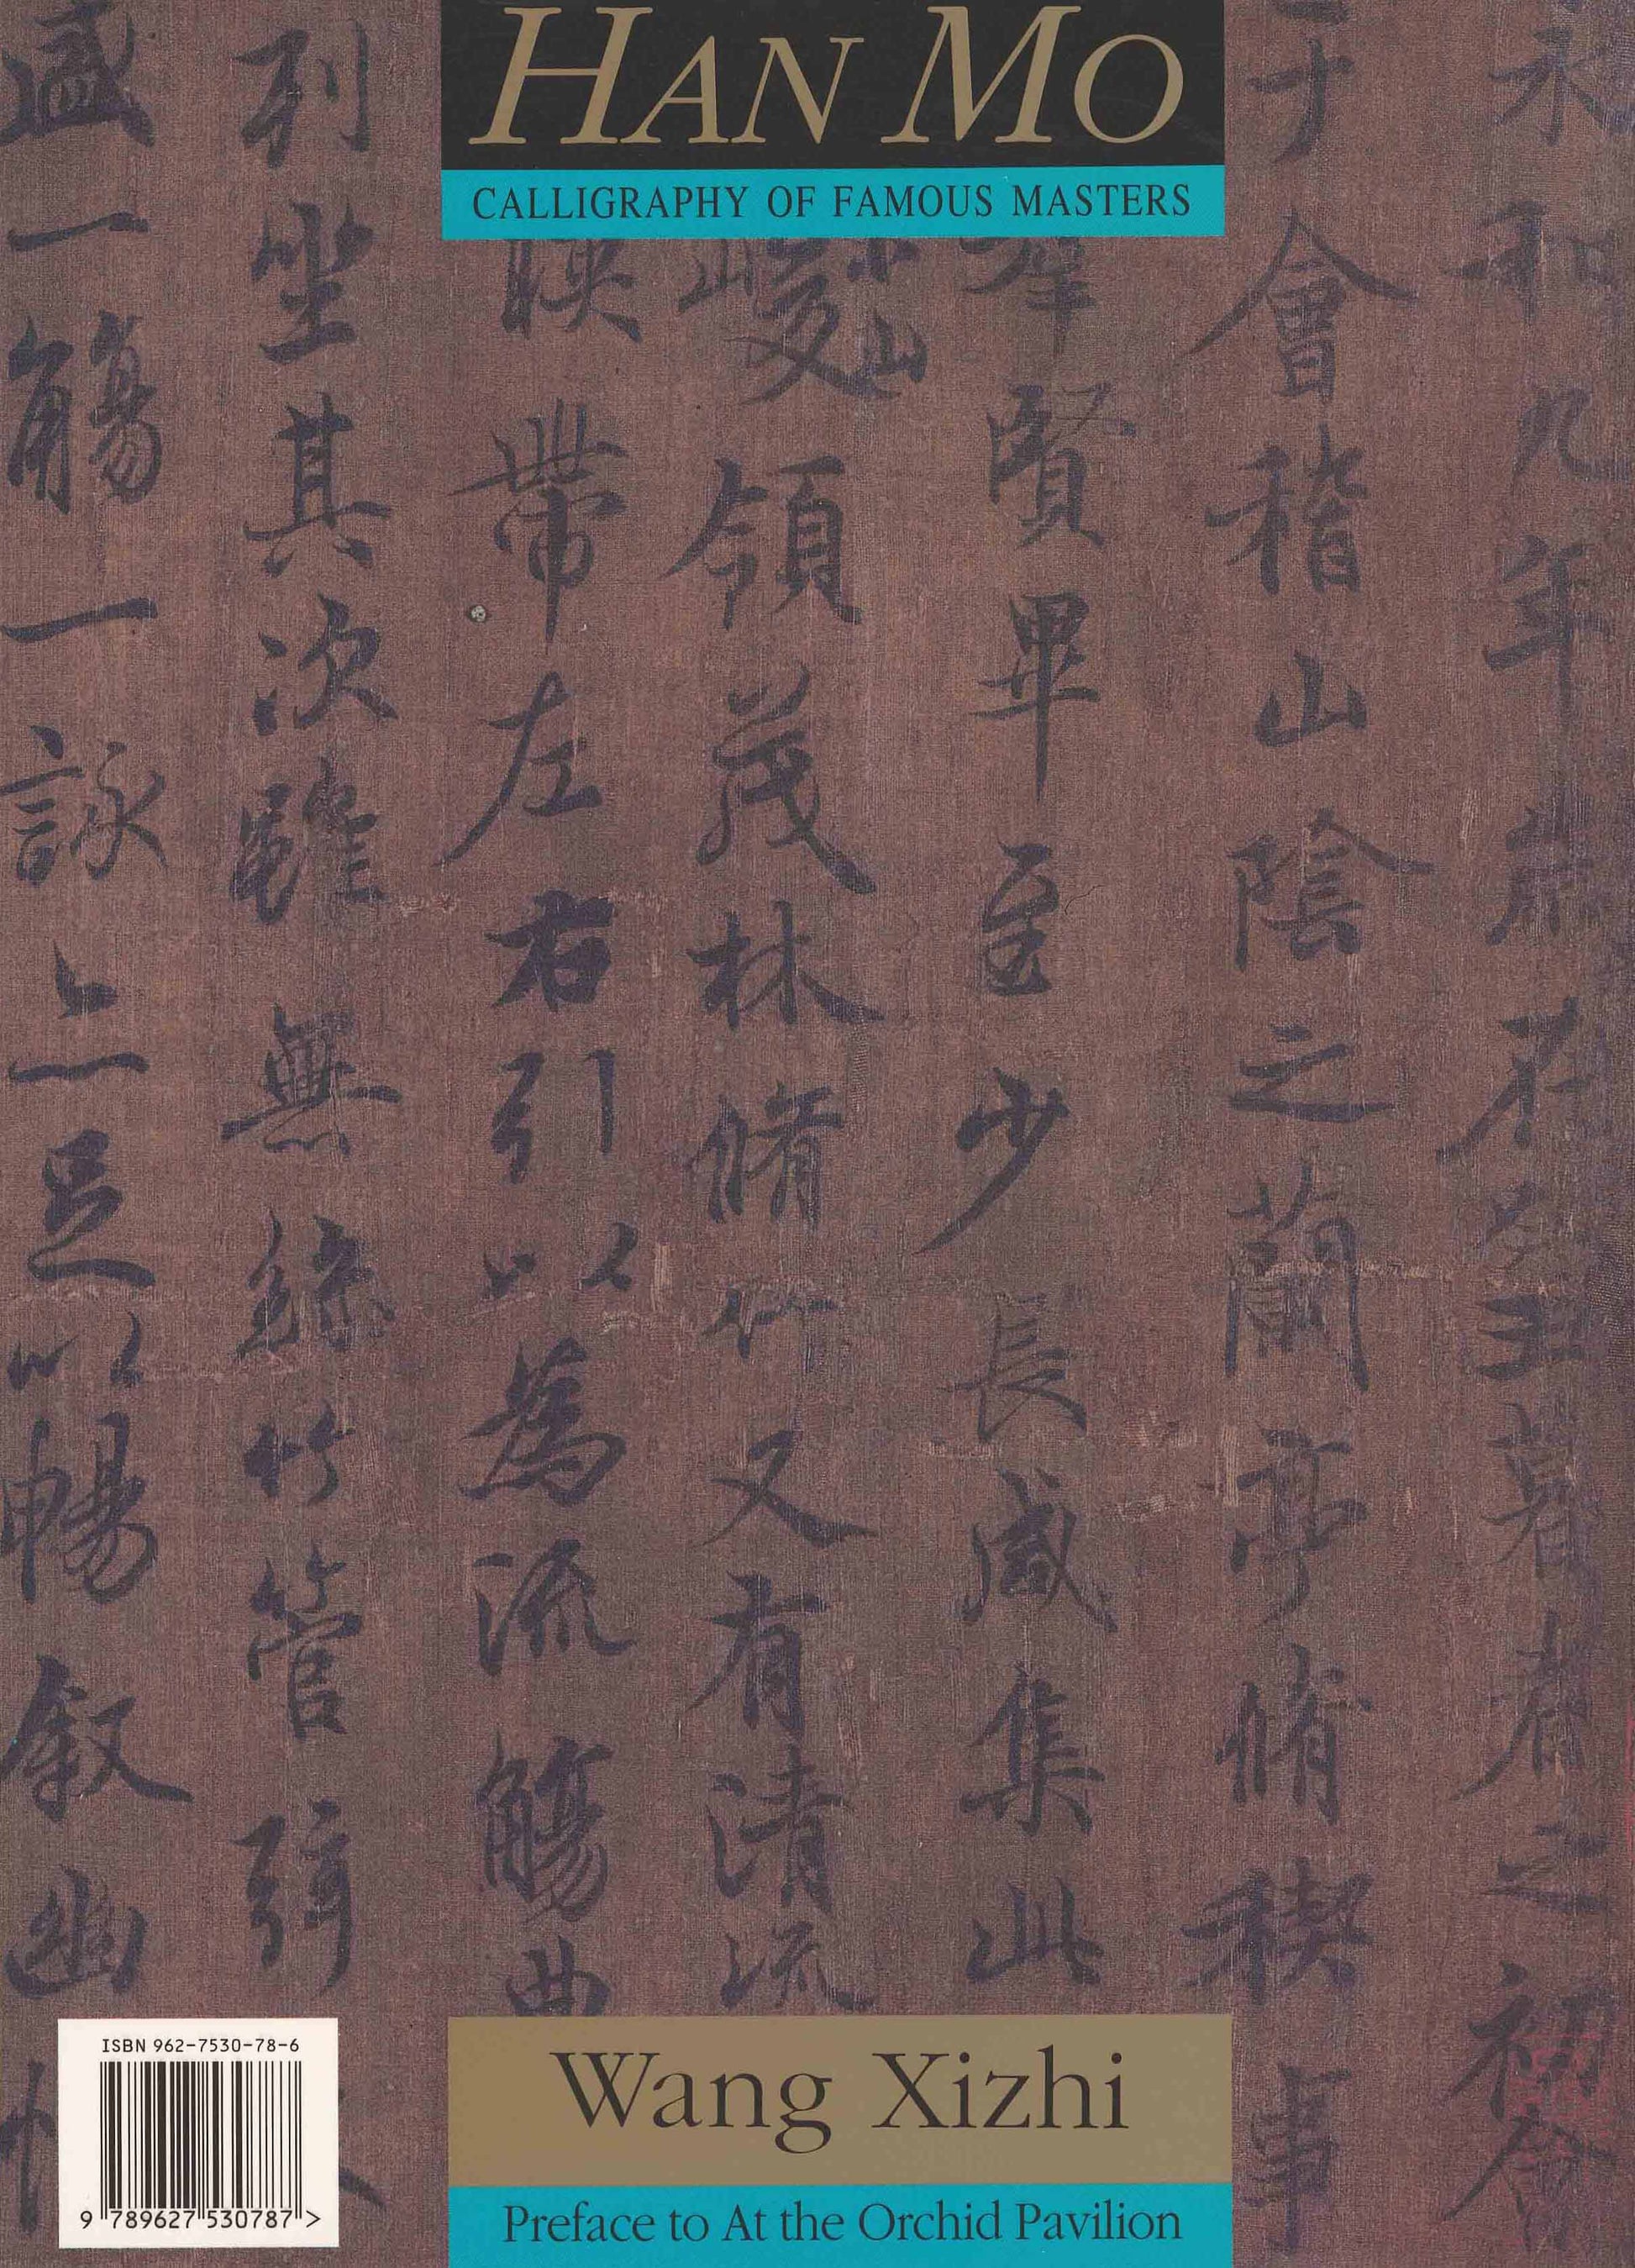 HAN MO
CALLIGRAPHY OF FAMOUS MASTERS
永和九年歲在癸丑暮春之初會
于會稽山陰之蘭亭脩稧事
羣賢畢至少長咸集此
峻領茂林脩竹又有清流
山
暎帶左右引以為流觴曲
列坐其次雖無絲竹管弦
盛一觴一詠亦足以暢敘幽
ISBN 962-7530-78-6
9 789627 530787 >
Wang Xizhi
Preface to At the Orchid Pavilion